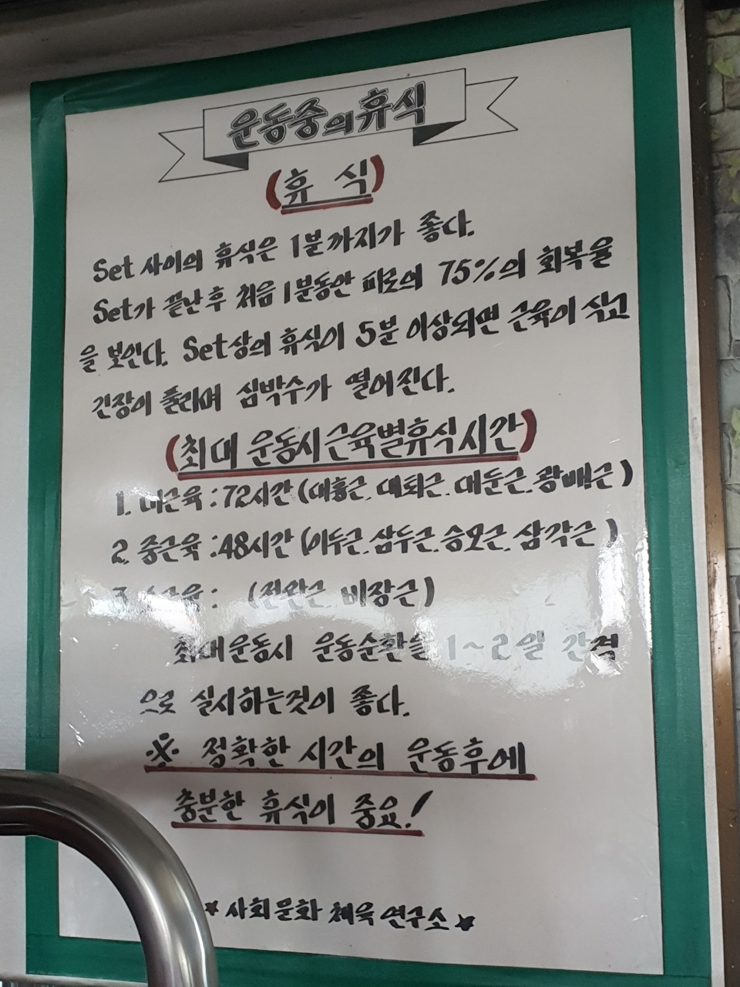 운동중의 휴식
(휴 식)
Set 사이의 휴식은 1분까지가 좋다.
Set가 끝난후 처음 1분동안 피로의 75%의 회복율
을 보인다. Set상의 휴식이 5분 이상되면 근육이 식고
긴장이 풀리며 심박수가 떨어진다.
(최대 운동시 근육별 휴식시간)
1. 대근육 : 72시간 (대흉근. 대퇴근. 대둔근. 광배근)
2. 중근육 : 48시간 (이두근. 삼두근. 승모근. 삼각근)
3. 소근육 : (전완근. 비장근)
최대운동시 운동순환을 1~2일 간격
으로 실시하는것이 좋다.
※ 정확한 시간의 운동후에
충분한 휴식이 중요!
★ 사회문화 체육 연구소 ★